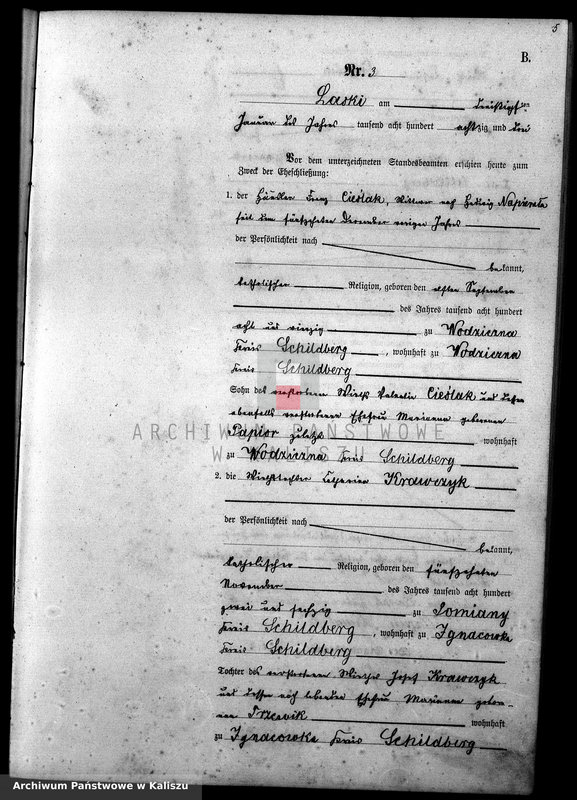 5
B.
Nr. 3
Laski am dreißigsten
Januar des Jahres tausend acht hundert achtzig und drei
Vor dem unterzeichneten Standesbeamten erschien heute zum
Zweck der Eheschließung:
1. der Händler Franz Cieślak, Wittwer nach Hedwig Napierała
seit dem fünfzehnten Dezember vorigen Jahres
der Persönlichkeit nach
bekannt,
katholischer Religion, geboren den elften September
des Jahres tausend acht hundert
acht und vierzig zu Wodziczna
Kreis Schildberg, wohnhaft zu Wodziczna
Kreis Schildberg
Sohn des verstorbenen Wirths Valentin Cieślak und dessen
ebenfalls verstorbenen Ehefrau Marianna geborenen
Papior zuletzt wohnhaft
zu Wodziczna Kreis Schildberg
ARCHIWUM PAŃSTWOWE
W KALISZU
2. die Wirthstochter Catharina Krawczyk
der Persönlichkeit nach
bekannt,
katholischer Religion, geboren den fünfzehnten
November des Jahres tausend acht hundert
zwei und sechzig zu Domiany
Kreis Schildberg, wohnhaft zu Ignacowka
Kreis Schildberg
Tochter des verstorbenen Wirthes Josef Krawczyk
und dessen noch lebenden Ehefrau Marianna gebore-
nen wohnhaft
zu Ignacowka Kreis Schildberg
Archiwum Państwowe w Kaliszu